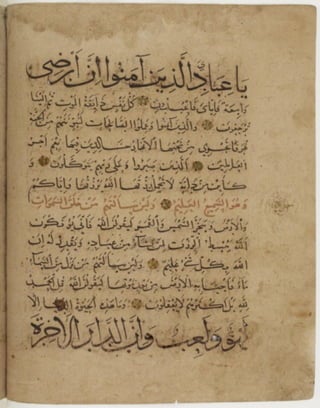 يا عبادي الذين آمنوا إن أرضي
واسعة فإياي فاعبدون كل نفس ذائقة الموت ثم إلينا
ترجعون والذين آمنوا وعملوا الصالحات لنبوئنهم من الجنة
غرفا تجري من تحتها الأنهار خالدين فيها نعم أجر
العاملين الذين صبروا وعلى ربهم يتوكلون و
كأين من دابة لا تحمل رزقها الله يرزقها وإياكم
وهو السميع العليم ولئن سألتهم من خلق السموات
والأرض وسخر الشمس والقمر ليقولن الله فأنى يؤفكون
الله يبسط الرزق لمن يشاء من عباده ويقدر له إن
الله بكل شيء عليم ولئن سألتهم من نزل من السماء
ماء فأحيا به الأرض من بعد موتها ليقولن الله قل الحمد
لله بل أكثرهم لا يعقلون وما هذه الحيوة الدنيا إلا
لهو ولعب وإن الدار الآخرة